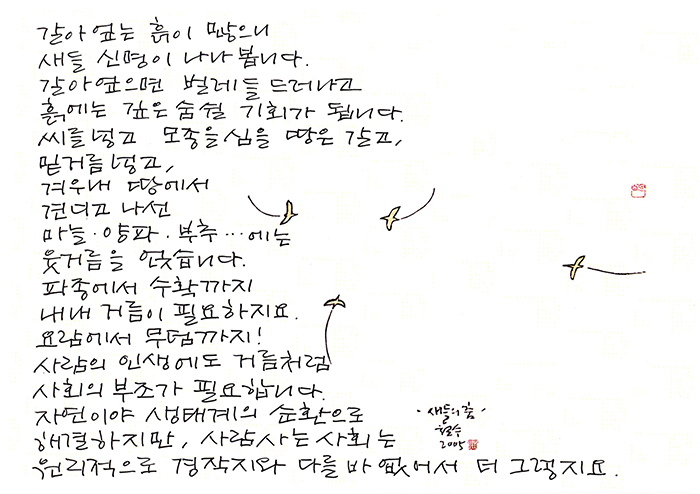 갈아엎는 흙이 많으니
새들 신명이 나나 봅니다.
갈아엎으면 벌레들 드러나고
흙에는 깊은 숨쉴 기회가 됩니다.
씨를 넣고 모종을 심을 땅은 갈고,
밑거름 넣고,
겨우내 땅에서
견디고 나선
마늘·양파·부추…에는
웃거름을 얹습니다.
파종에서 수확까지
내내 거름이 필요하지요.
요람에서 무덤까지!
사람의 인생에도 거름처럼
사회의 부조가 필요합니다.
자연이야 생태계의 순환으로
해결하지만, 사람사는 사회는
원리적으로 경작지와 다를 바 없어서 더 그렇지요.
·새들의 춤·
2005